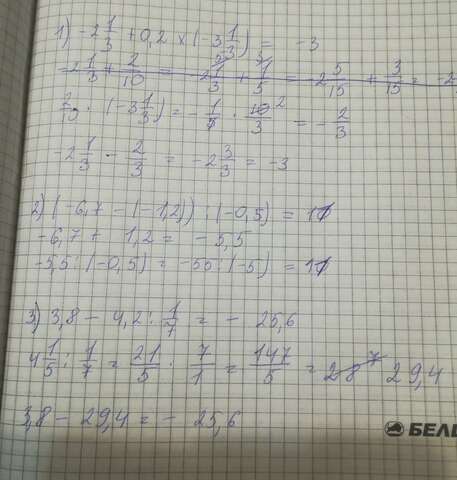 1) -2 1/3 + 0,2 × (-3 1/3) = -3
-2 1/3 + 2/10 = -2 1/3 + 1/5 = -2 5/15 + 3/15 = -2
2/10 · (-3 1/3) = - 1/5 · 10/3 2 = - 2/3
-2 1/3 - 2/3 = -2 3/3 = -3
2) (-6,7 - (-1,2)) : (-0,5) = 11
-6,7 + 1,2 = -5,5
-5,5 : (-0,5) = -55 : (-5) = 11
3) 3,8 - 4,2 : 1/7 = - 25,6
4 1/5 : 1/7 = 21/5 · 7/1 = 147/5 = 29,4
3,8 - 29,4 = - 25,6